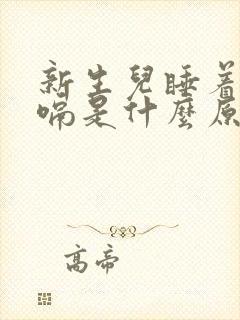 新生兒睡着
喘是什麼原
高帝